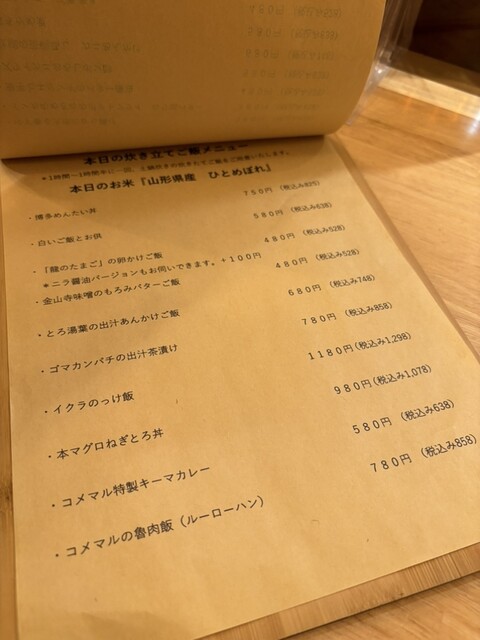 本日の炊き立てご飯メニュー
＊1時間～1時間半に一回、土鍋炊きの炊きたてご飯をご用意いたします。
本日のお米『山形県産　ひとめぼれ』
・博多めんたい丼　750円（税込み825）
・白いご飯とお供　580円（税込み638）
・「龍のたまご」の卵かけご飯　480円（税込み528）
＊ニラ醤油バージョンもお伺いできます。＋100円
・金山寺味噌のもろみバターご飯　480円（税込み528）
・とろ湯葉の出汁あんかけご飯　680円（税込み748）
・ゴマカンパチの出汁茶漬け　780円（税込み858）
・イクラのっけ飯　1180円（税込み1,298）
・本マグロねぎとろ丼　980円（税込み1,078）
・コメマル特製キーマカレー　580円（税込み638）
・コメマルの魯肉飯（ルーローハン）　780円（税込み858）